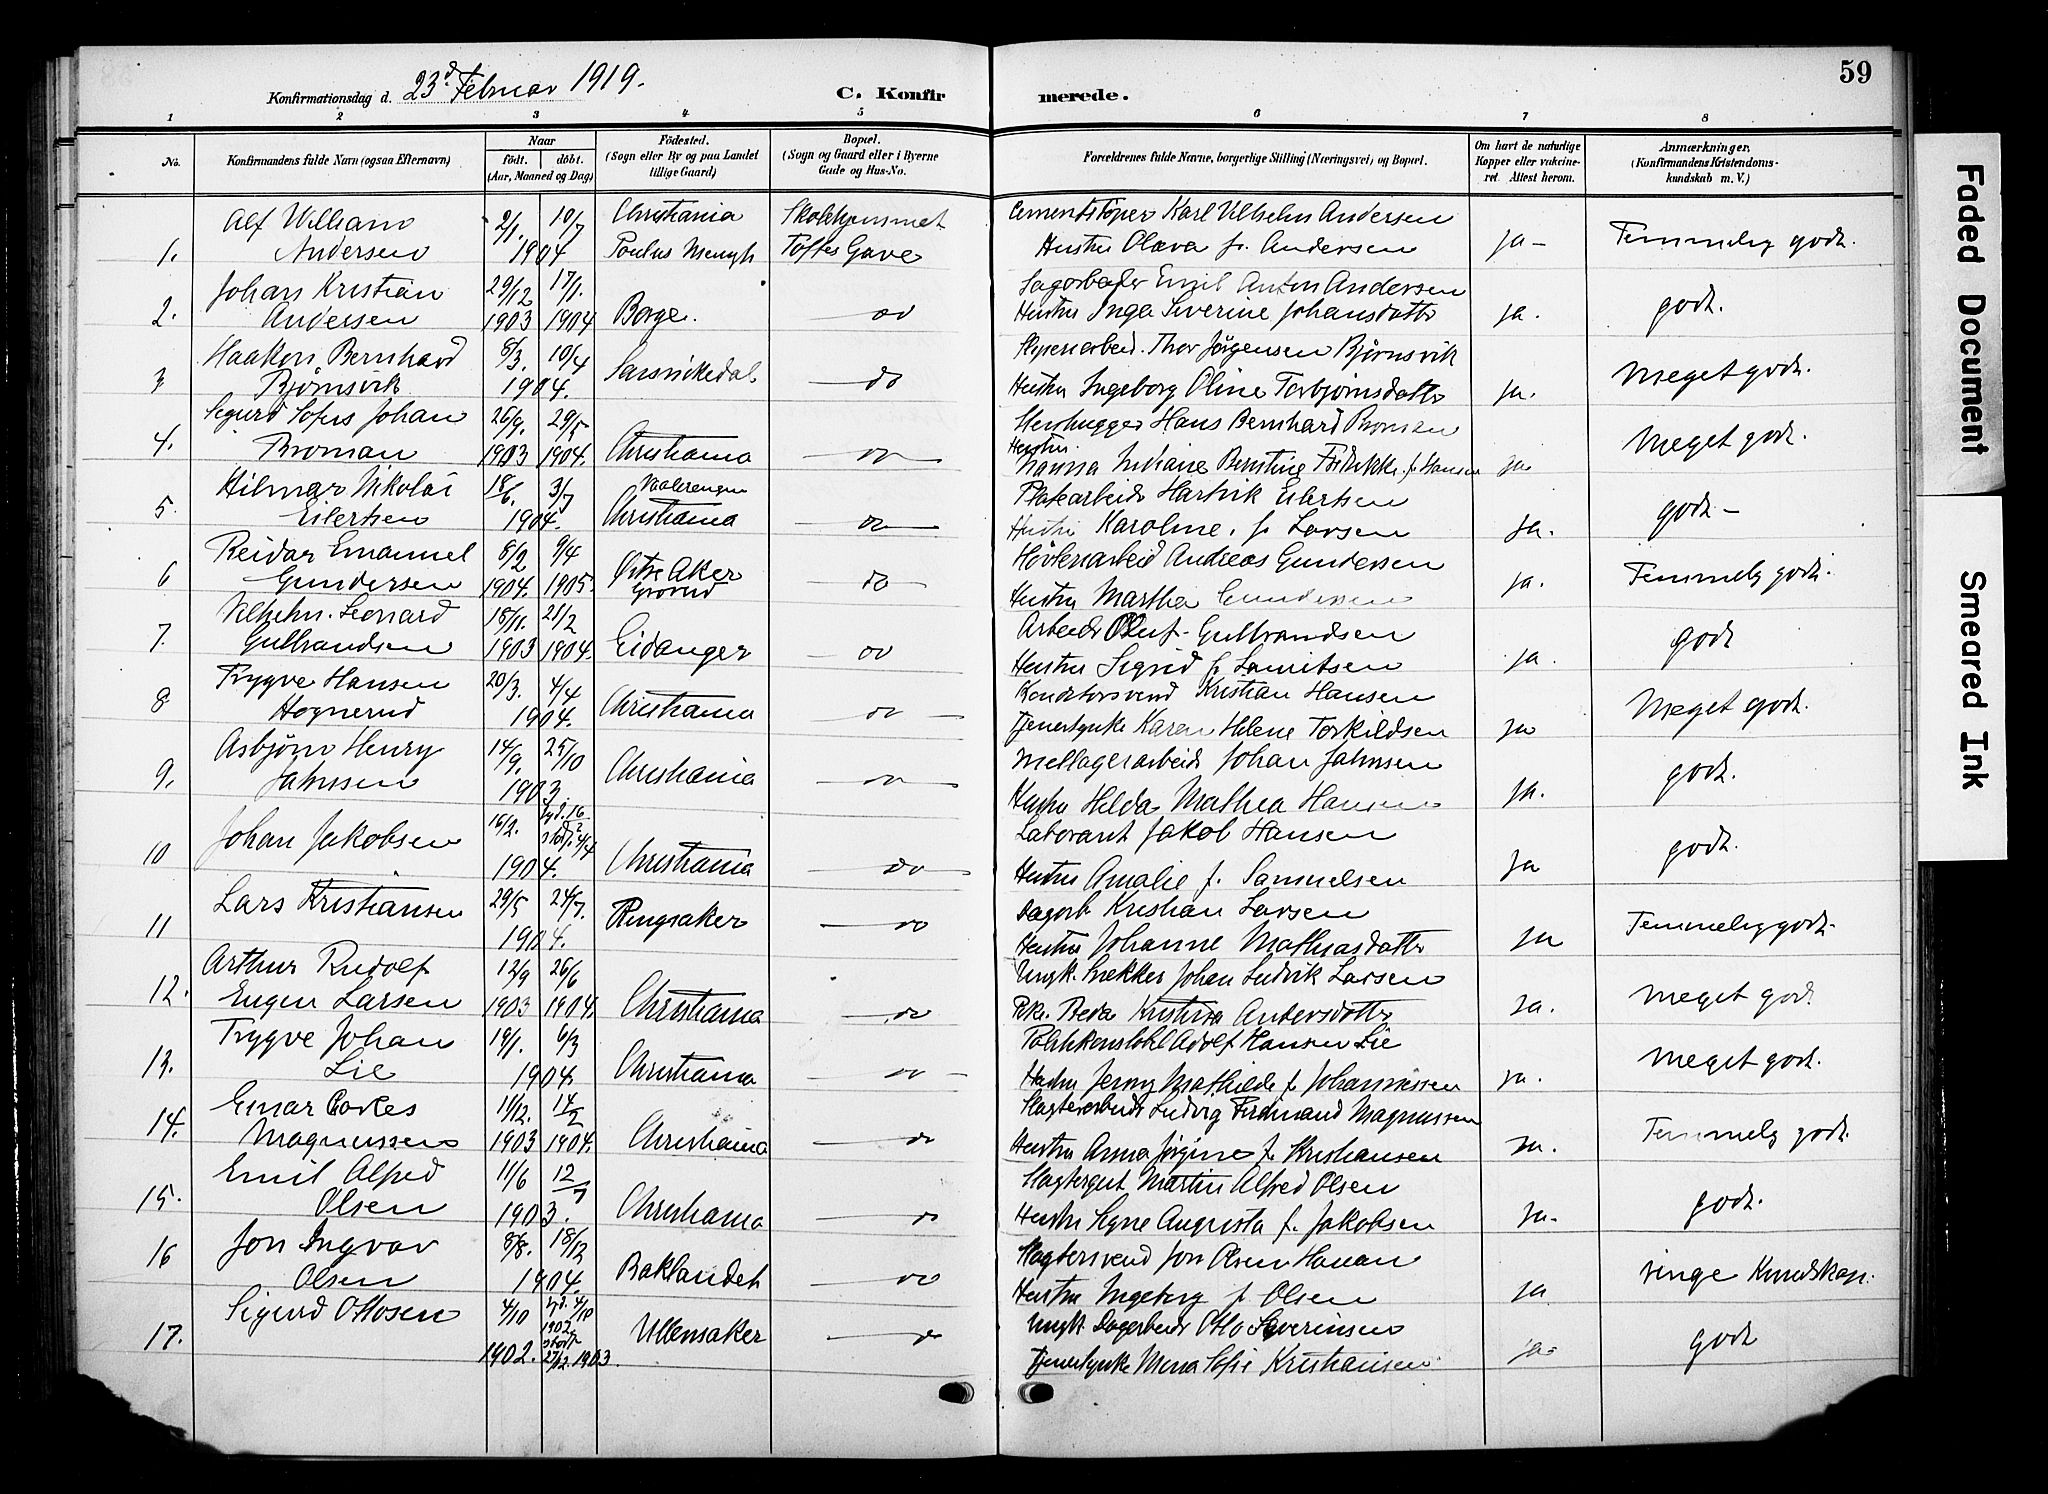 59
Konfirmationsdag d. 23d Februar 1919.
C. Konfirmerede.
1 2 3 4 5 6 7 8
No.
Konfirmandens fulde Navn (ogsaa Efternavn)
Naar
födt. döbt.
(Aar, Maaned og Dag)
Födested.
(Sogn eller By og paa Landet
tillige Gaard)
Bopæl.
(Sogn og Gaard eller i Byerne
Gade og Hus-No.
Forældrenes fulde Navne, borgerlige Stilling (Næringsvei) og Bopæl.
Om havt de naturlige
Kopper eller vakcine-
ret. Attest herom.
Anmærkninger.
(Konfirmandens Kristendoms-
kundskab m. V.)
Alf William 2/1. 10/7 Christiania Skolehjemmet Cementstöper Karl Vilhelm Andersen
1. Andersen 1904 Paulus Toftes Gave Hustru Olava f. Andersen ja- Temmelig godt.
Johan Kristian 29/12 17/1. Emil Anton Andersen
2. Andersen 1903 1904 Borge. do Hustru Inga Severine Johansdatter ja. godt.
Haakon Bernhard 8/3. 10/4 Thor Jørgensen Bjørnsvik
3 Bjørnsvik 1904. do Hustru Ingeborg Oline Torbjørnsdatter ja. Meget godt.
Sigurd Sofus Johan 26/9. 29/5 Stenhugger Hans Bernhard Broman
4. Broman 1903 1904. Christiania do Hustru Hanna f. Hansen ja Meget godt.
Hilmar Nikolai 18/6. 3/7 Vaalerengen Hartvik Eilertsen
5. Eilertsen 1904. Christiania do Hustru Karoline. f. Larsen ja. godt-
Reidar Emanuel 8/2 9/4 Høvleriarbeid Andreas Gundersen
6 Gundersen 1904. 1905. Østre Aker Grorud do Hustru Martha Gundersen ja. Temmelig godt.
Vilhelm Leonard 18/11. 21/2 Arbeider Oluf Gulbrandsen
7. Gulbrandsen 1903 1904. Eidanger do Hustru Sigrid f. Lauritsen ja. godt
Trygve Hansen 20/3. 4/4 Konditorsvend Kristian Hansen
8 Hognerud 1904. Christiania do Tjenerpike Karen Helene Torkildsen ja Meget godt.
Asbjørn Henry 14/9. 25/10 Johan Jahnsen
9. Jahnsen 1903. Christiania do Hustru Hilda Mathea Hansen ja. godt.
Johan Jakobsen 16/2. Laborant Jakob Hansen
10 1904. Christiania do Hustru Amalie f. Samuelsen ja godt.
Lars Kristiansen 29/5 24/7. Dagarb Kristian Larsen
11 1904. Ringsaker do Hustru Johanne Mathiasdatter ja Temmelig godt.
Arthur Rudolf 12/9 26/6 Ungk. Snekker Johan Ludvik Larsen
12. Eugen Larsen 1903 1904. Christiania do Pike Beda Kristina Andersdatter ja. Meget godt.
Trygve Johan 19/1. 6/3 Politikonstabel Adolf Hansen Lie
13. Lie 1904. Christiania do Hustru Jenny Mathilde f. Johannessen ja. Meget godt.
Einar 11/12. 14/2 Slagterarbeider Ludvig Ferdinand Magnussen
14. Magnussen 1903 1904. Christiania do Hustru Anna Jørgine f. Kristiansen ja. Temmelig godt.
Emil Alfred 11/6 12/7 Martin Alfred Olsen
15. Olsen 1903. Christiania do Hustru Signe Augusta f. Jakobsen ja. godt.
Jon Ingvar 8/8. 18/12 Slagtersvend Jon Olsen
16 Olsen 1904. Baklandet do Hustru Ingeborg f. Olsen ja ringe Kundskap.
Sigurd Ottosen 4/10 Hjd. 4/10 1902 Ungk. Dagarbeider Otto Severinsen
17. 1902. 27/12. 1903. Ullensaker do Tjenerpike Sofie Kristiansen ja godt
Faded Document
Smeared Ink